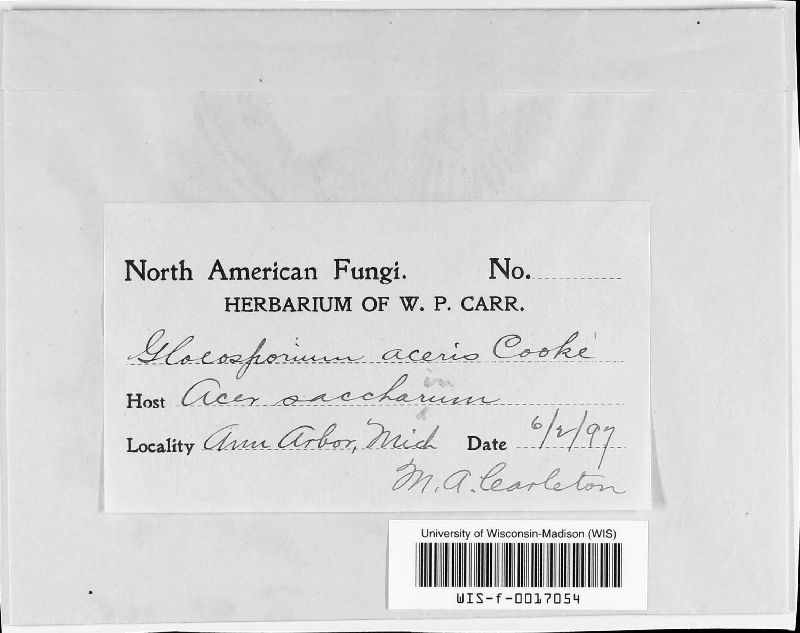 North American Fungi. No.
HERBARIUM OF W. P. CARR.
Gloeosporium aceris Cooke
in
Host Acer saccharum
Locality Ann Arbor, Mich Date 6/2/97
M. A. Carleton
University of Wisconsin-Madison (WIS)
WIS-f-0017054